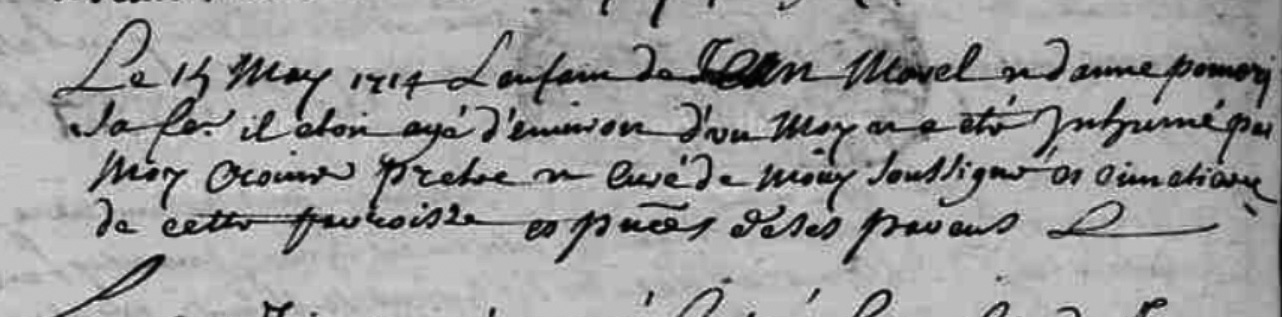 Le 15 May 1714 L'enfain de Jean Morel & d'anne pomory
Sa fe. il etoit agé d'environ d'un Moy & a eté Inhumé par
Moy pretre & curé de Mouy soussigné Es cimetiere
de cette parroisse es pnces de ses parens